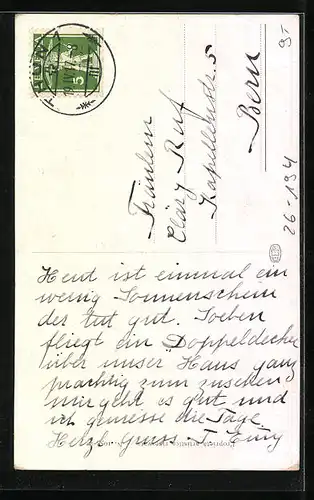 THUN
5
Fräulein
Cläry Ruf
Kapellenstr. 5
Bern
26-194
Heut ist einmal ein
wenig Sonnenschein
der tut gut. Soeben
fliegt ein "Doppeldecker
über unser Haus ganz
prächtig zum zusehen
mir geht es gut und
ich geniesse die Tage.
Herzl. Gruss